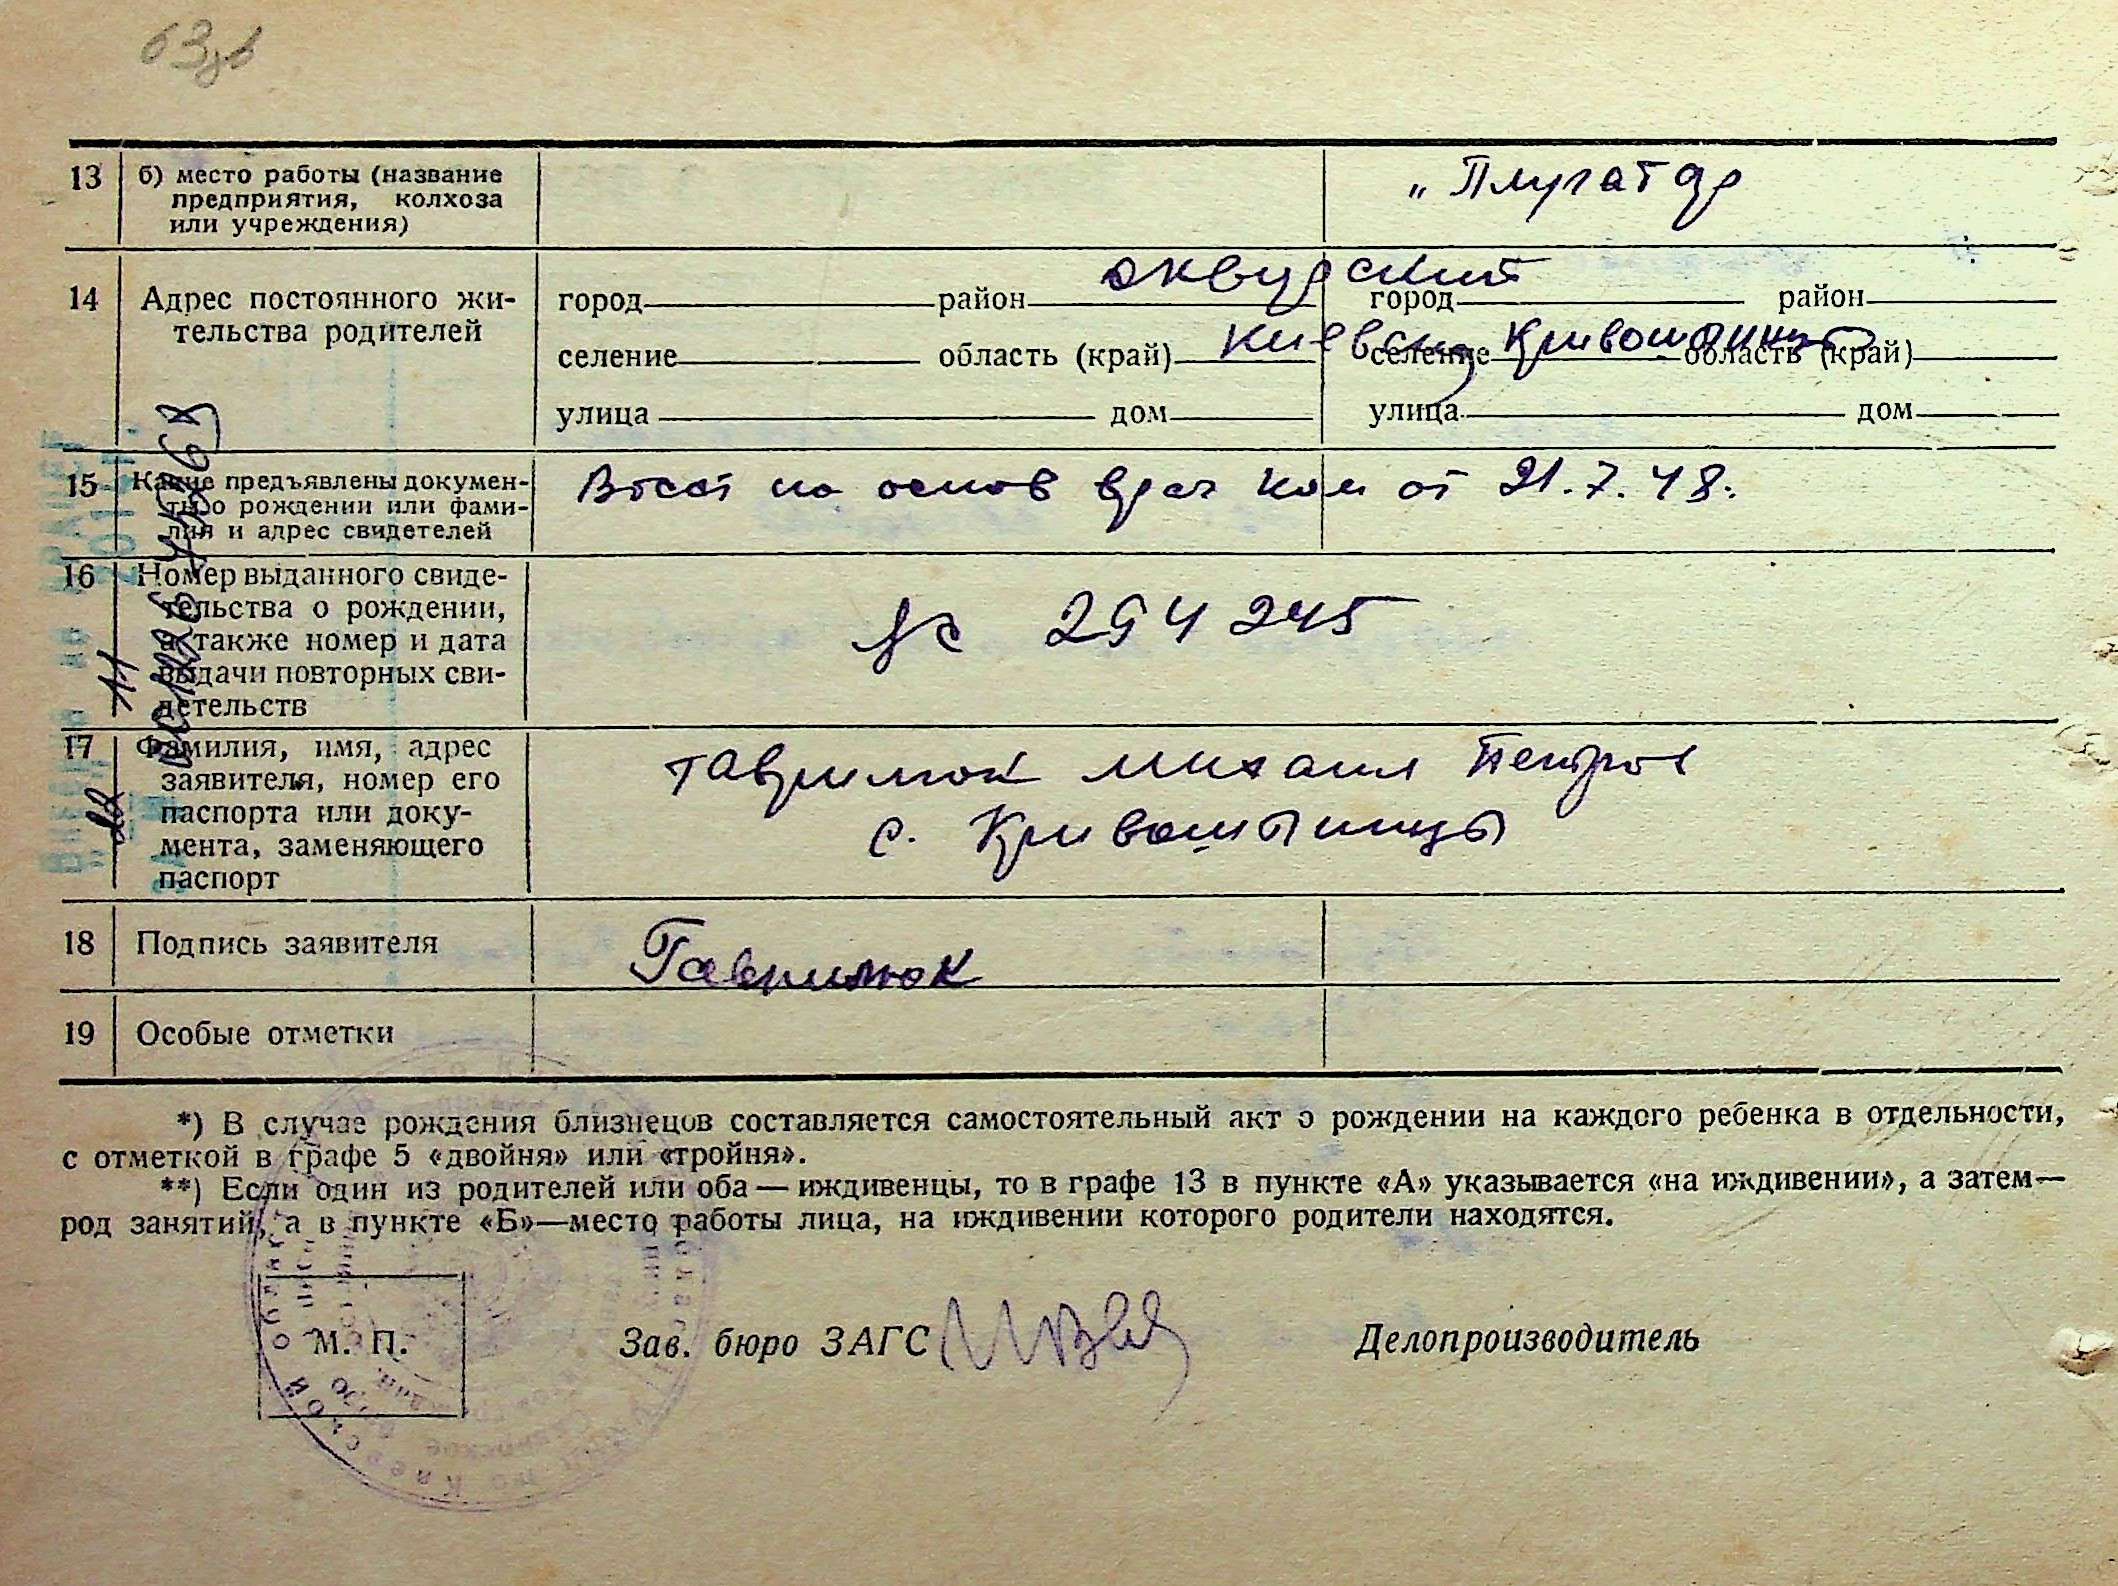 63
13 б) место работы (название
предприятия, колхоза
или учреждения)
14 Адрес постоянного жи-
тельства родителей
город район город район
селение область (край) Киевск Кривошиинци селение область (край)
улица дом улица дом
15 Какие предъявлены докумен-
ты о рождении или фами-
лия и адрес свидетелей
Восст на основ врач ком от 21.7.48.
16 Номер выданного свиде-
тельства о рождении,
а также номер и дата
выдачи повторных сви-
детельств
№ 294245
17 Фамилия, имя, адрес
заявителя, номер его
паспорта или доку-
мента, заменяющего
паспорт
Гаврилюк Михаил Петров
с.
18 Подпись заявителя Гаврилюк
19 Особые отметки
*) В случае рождения близнецов составляется самостоятельный акт о рождении на каждого ребенка в отдельности,
с отметкой в графе 5 «двойня» или «тройня».
**) Если один из родителей или оба — иждивенцы, то в графе 13 в пункте «А» указывается «на иждивении», а затем—
род занятий, а в пункте «Б»—место работы лица, на иждивении которого родители находятся.
М. П. Зав. бюро ЗАГС Делопроизводитель